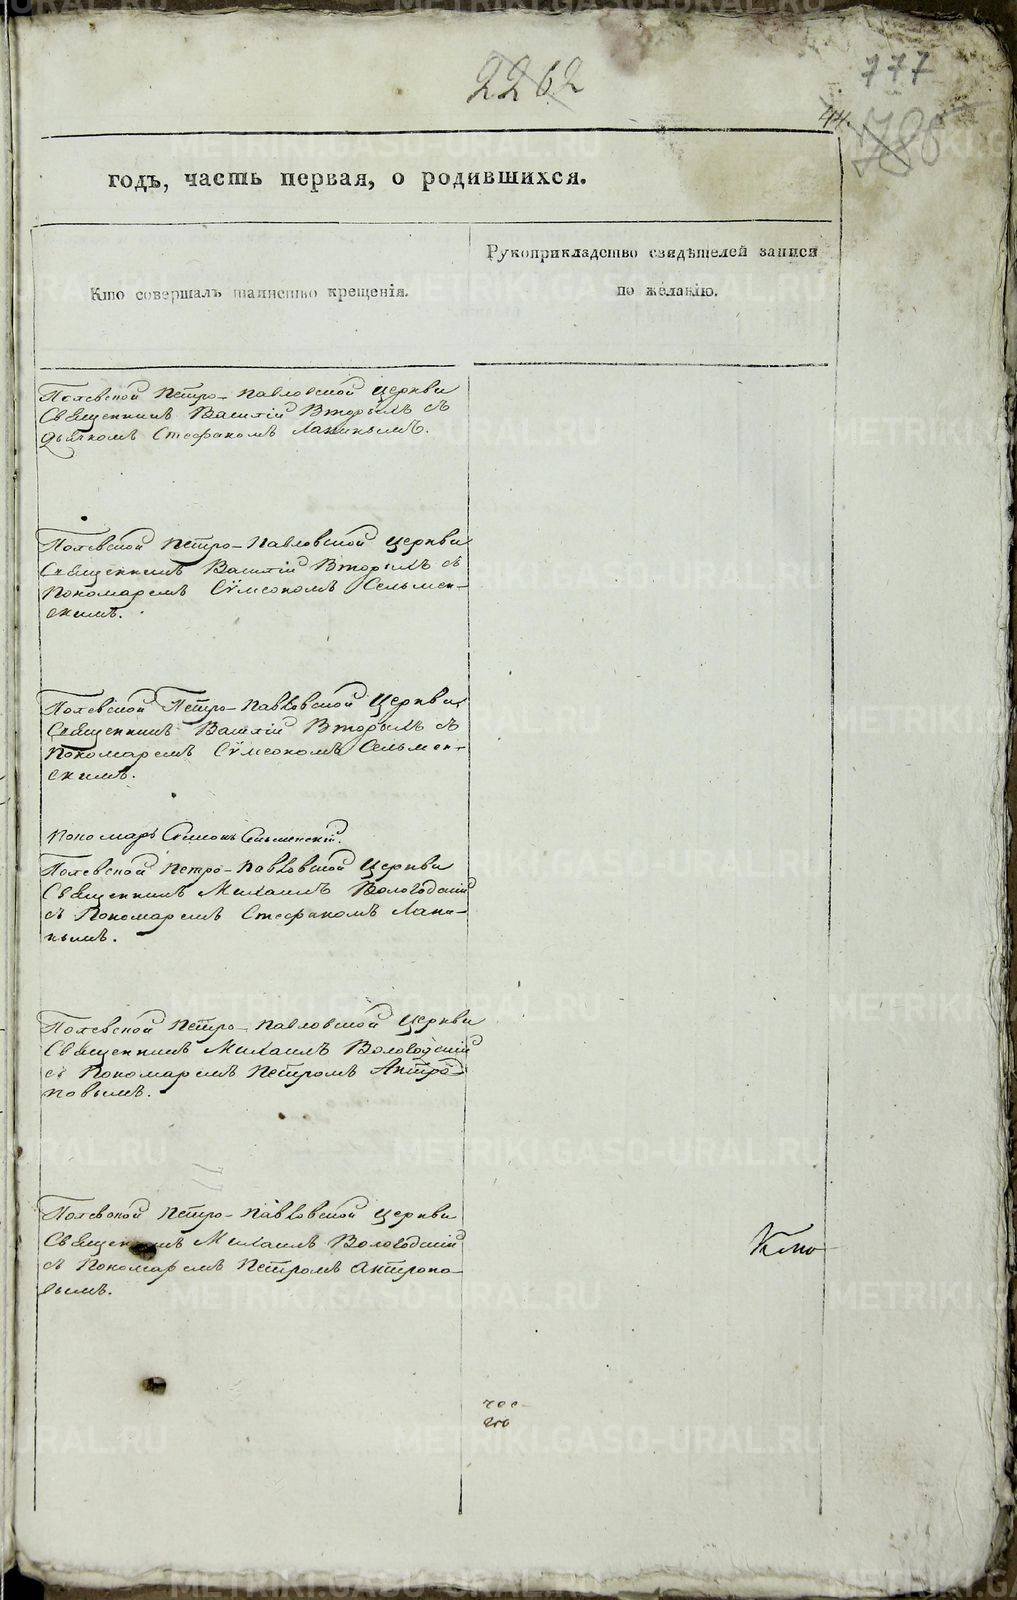 2262
777
44.
786
годъ, часть первая, о родившихся.
Кто совершалъ таинство крещенія.
Рукоприкладство свидѣтелей записи
по желанію.
Полевской Петро-Павловской Церкви
Священникъ Василій Вторыхъ съ
дьячкомъ Стефаномъ Лапинымъ.
Полевской Петро-Павловской Церкви
Священникъ Василій Вторыхъ съ
Пономаремъ Сѵмеономъ Сельмен-
скимъ.
Полевской Петро-Павловской Церкви
Священникъ Василій Вторыхъ съ
Пономаремъ Сѵмеономъ Сельмен-
скимъ.
Пономарь Сѵмеонъ Сельменскій.
Полевской Петро-Павловской Церкви
Священникъ Михаилъ Вологодскій
съ Пономаремъ Стефаномъ Лапи-
нымъ.
Полевской Петро-Павловской Церкви
Священникъ Михаилъ Вологодскій
съ Пономаремъ Петромъ Антро-
повымъ.
Полевской Петро-Павловской Церкви
Священникъ Михаилъ Вологодскій
съ Пономаремъ Петромъ Антропо-
вымъ.
METRIKI.GASO-URAL.RU